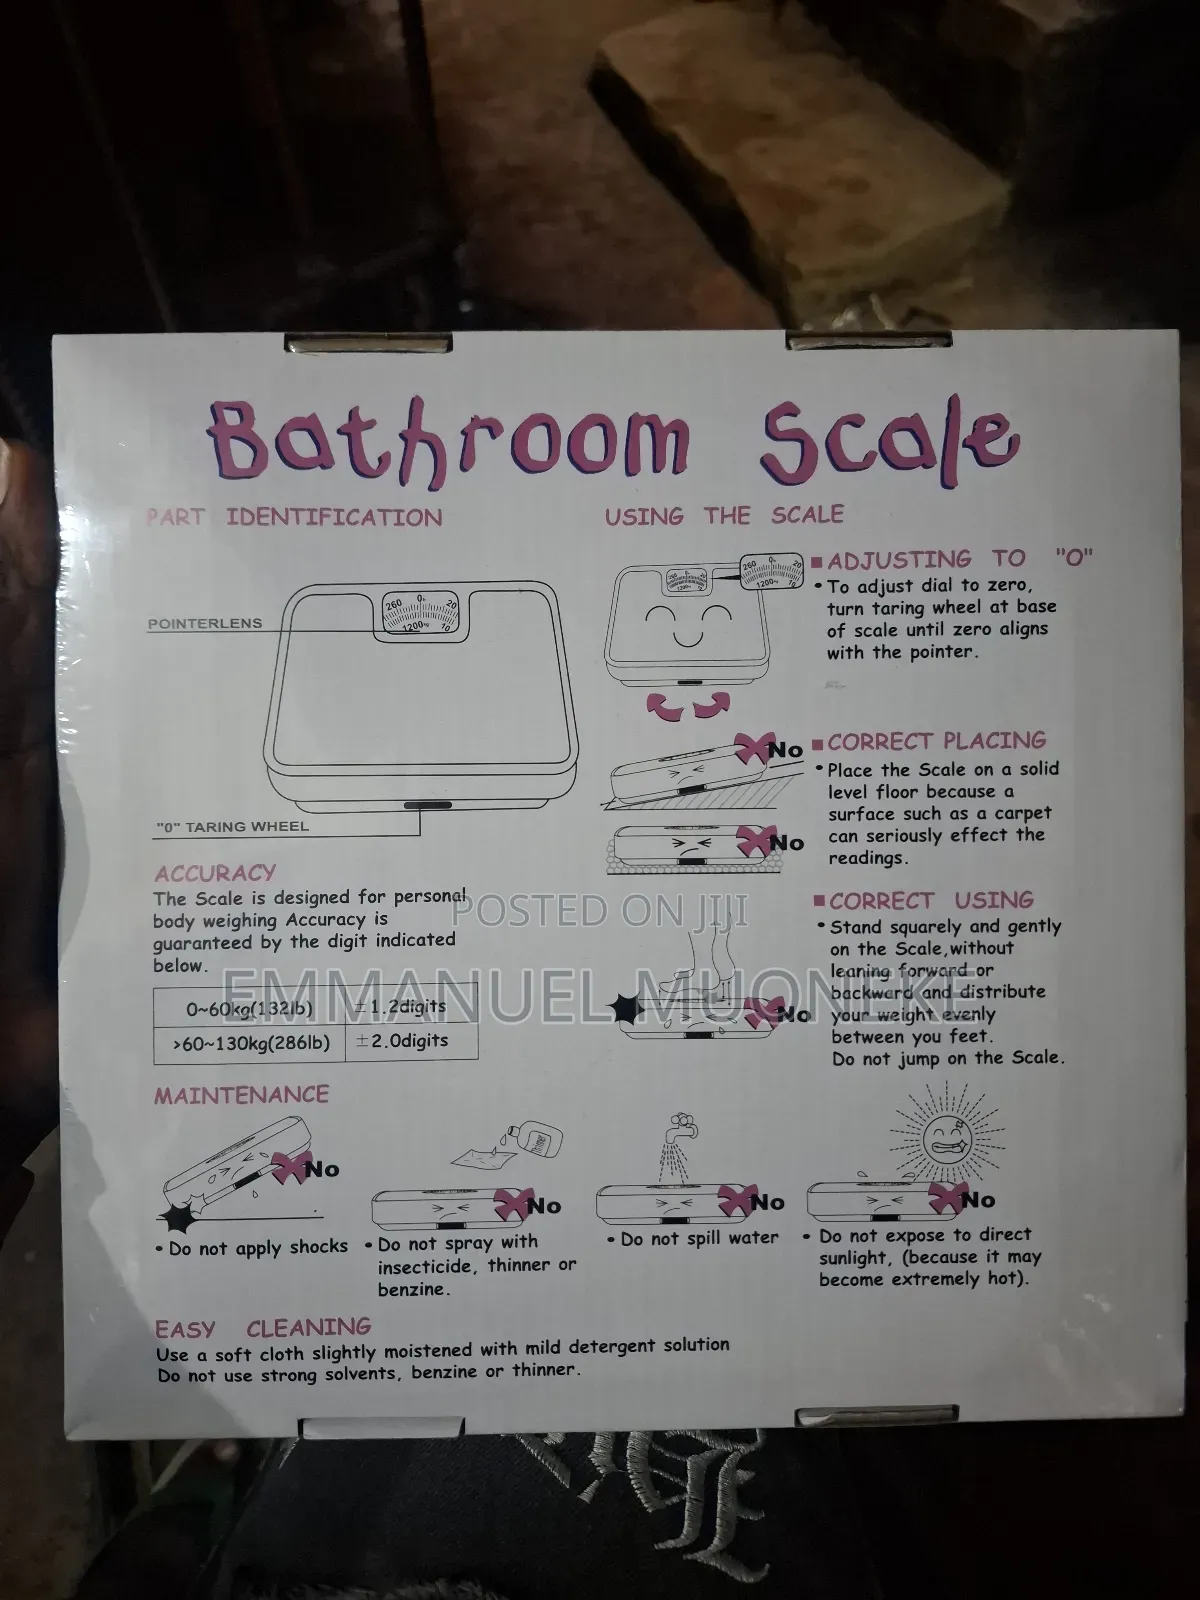 Bathroom Scale
PART IDENTIFICATION
POINTERLENS
260 0 20
1200 10
"0" TARING WHEEL
ACCURACY
The Scale is designed for personal
body weighing Accuracy is
guaranteed by the digit indicated
below.
0~60kg(132lb) ±1.2digits
>60~130kg(286lb) ±2.0digits
USING THE SCALE
260 0 20
1200 10
■ADJUSTING TO "O"
•To adjust dial to zero,
turn taring wheel at base
of scale until zero aligns
with the pointer.
No
■CORRECT PLACING
•Place the Scale on a solid
level floor because a
surface such as a carpet
can seriously effect the
readings.
No
■CORRECT USING
•Stand squarely and gently
on the Scale,without
leaning forward or
backward and distribute
your weight evenly
between you feet.
Do not jump on the Scale.
No
POSTED ON JIJI
EMMANUEL MUONEKE
MAINTENANCE
No
• Do not apply shocks
Thinner
No
•Do not spray with
insecticide, thinner or
benzine.
No
• Do not spill water
No
• Do not expose to direct
sunlight, (because it may
become extremely hot).
EASY CLEANING
Use a soft cloth slightly moistened with mild detergent solution
Do not use strong solvents, benzine or thinner.